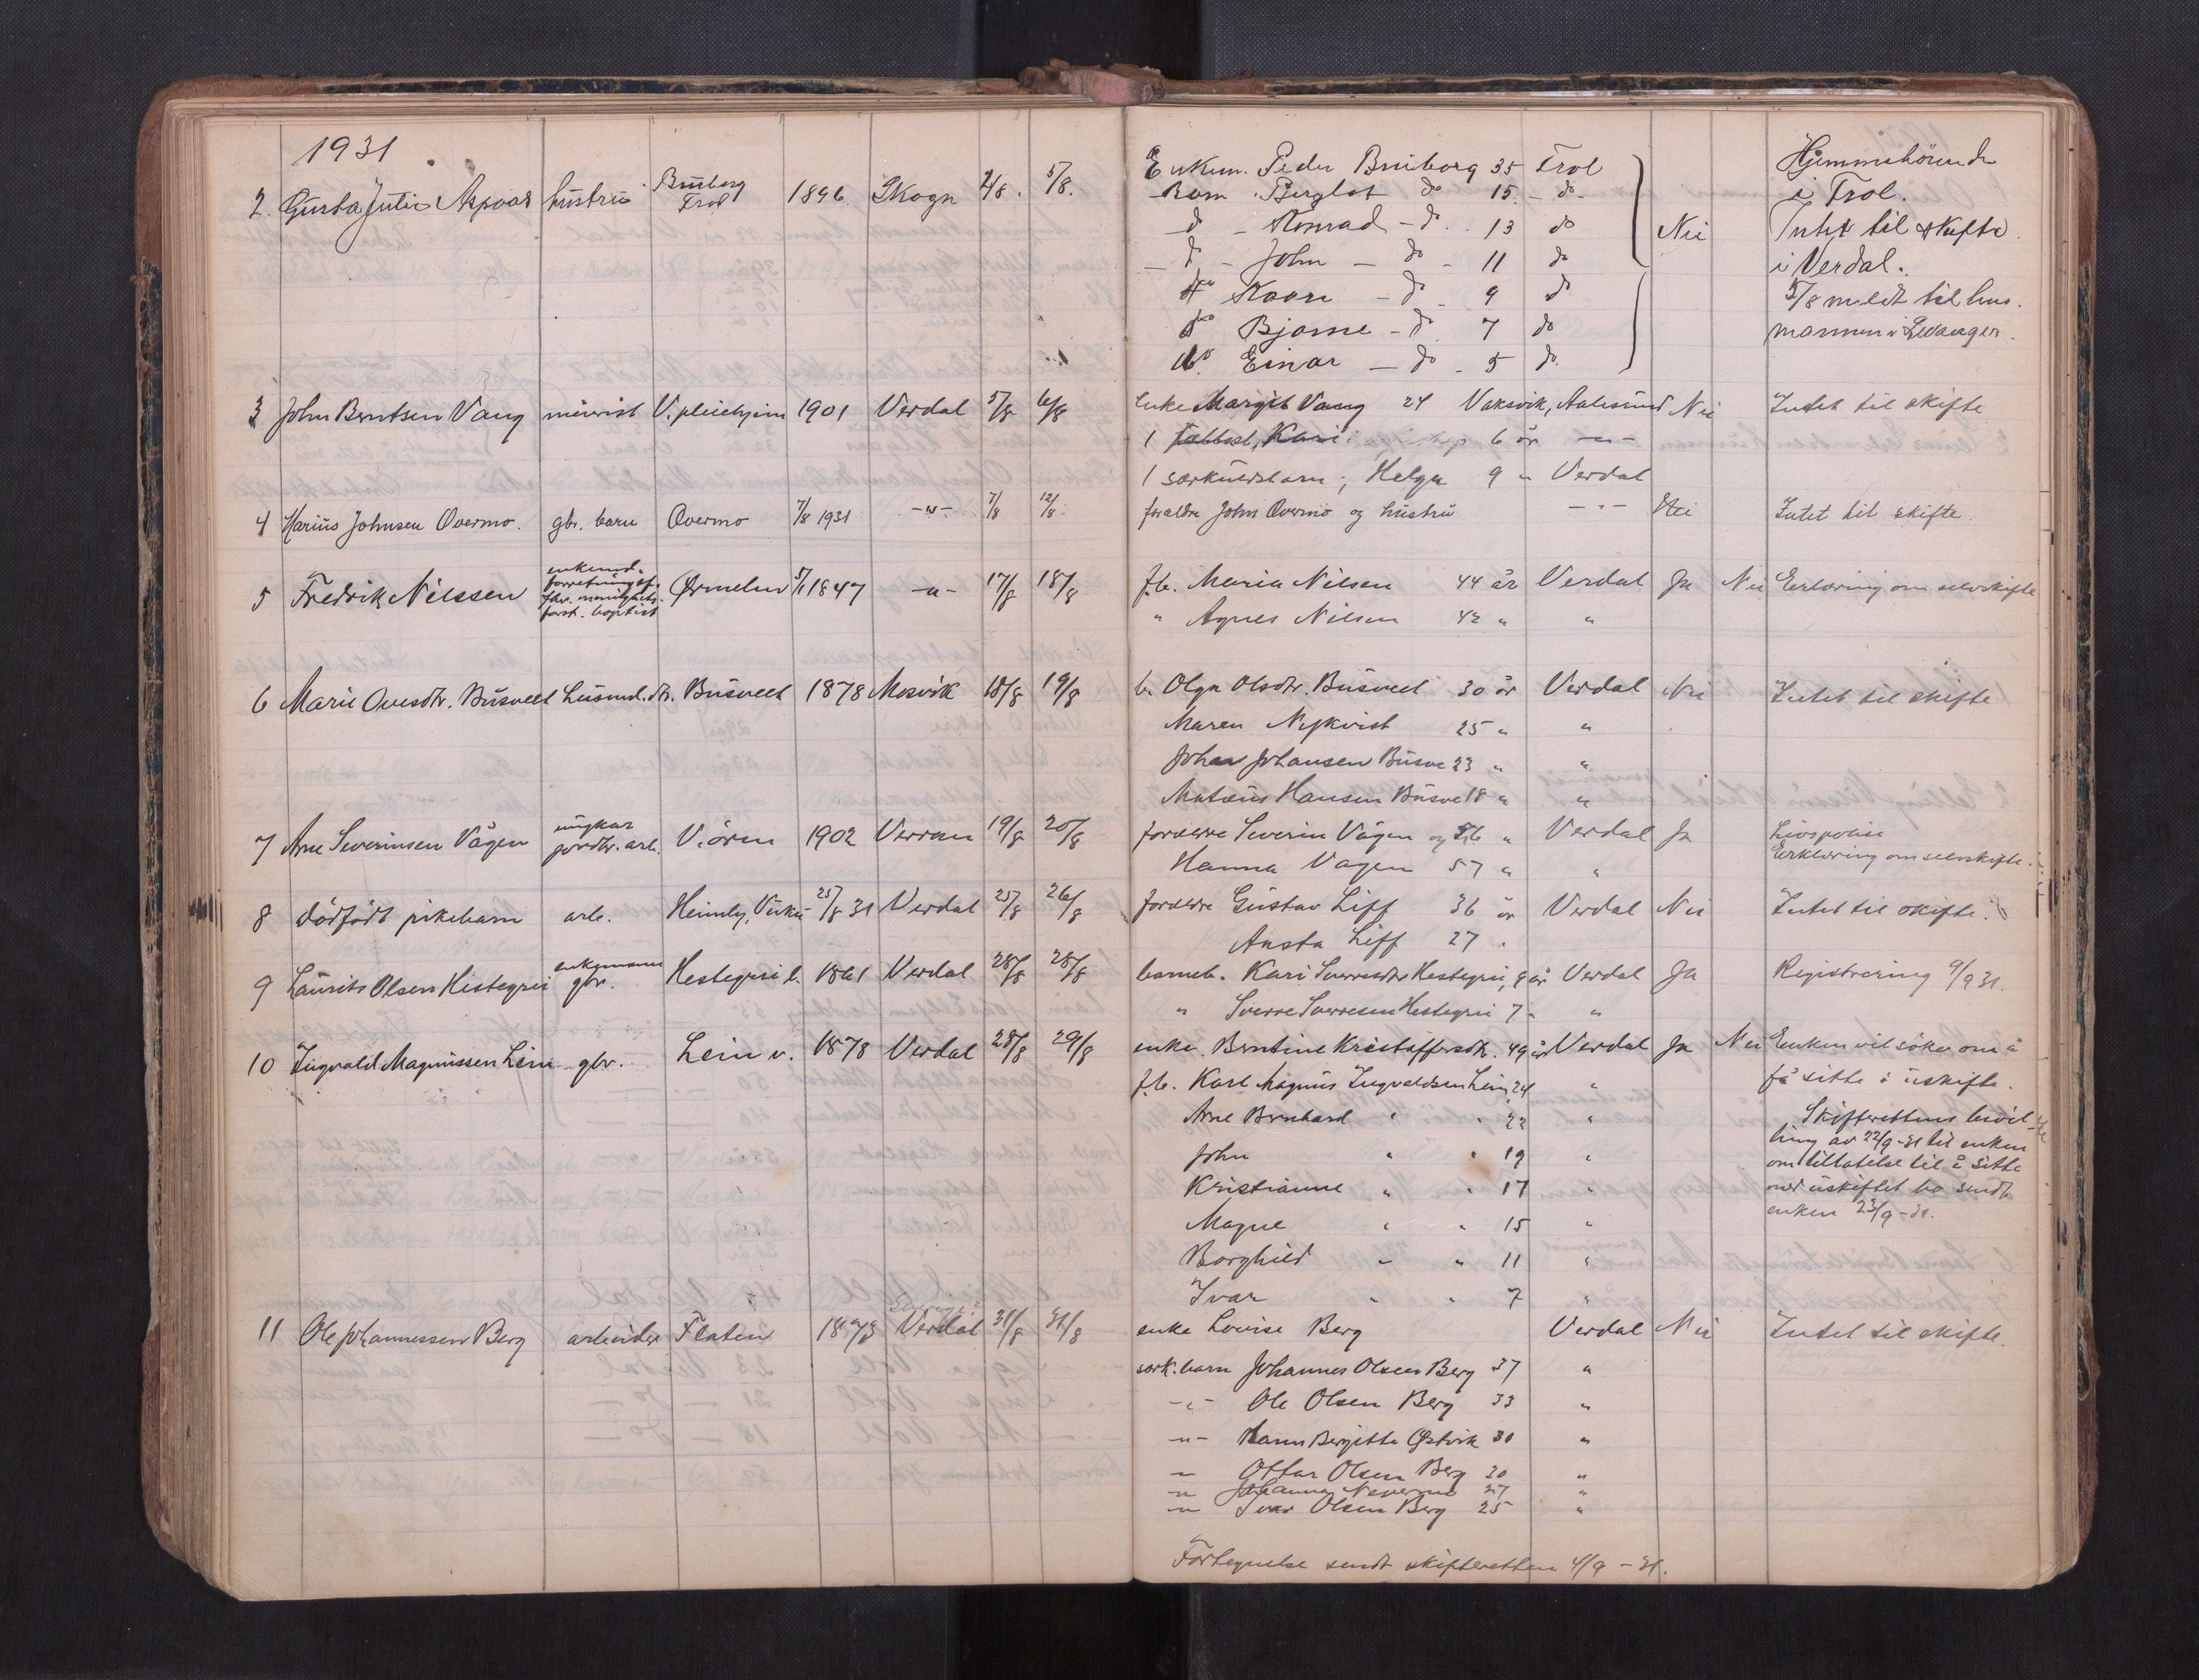 1931
2. Gusta Julie Aspoas hustru Buiborg Frol 1896 Skogn 2/8. 5/8. Enkem. Peder Buiborg 35 Frol Nei Hjemmehörende
Barn Bergliot do 15. - do - i Frol.
do - Konrad - do. 13 do Intet til skifte.
do - John - do - 11 do i Verdal.
do Kaare - do - 9 do 5/8 meldt til lens.
do Bjarne - do 7 do mannen i Levanger.
do Einar - do - 5 do.
3 John Berntsen Vang murist V. pleiehjem 1901 Verdal 5/8 6/8 Enke Margit Vang 24 Vaksvik, Aalesund Nei Intet til skifte
1 Kari 6 år -"-
1 særkulsbarn, Helga 9 " Verdal
4 Marius Johnsen Overmo. gbr. barn Overmo 7/8 1931 -"- 7/8 12/8 foreldre John Overmo og hustru -"- Nei Intet til skifte.
5 Fredrik Nilssen enkemd. forretningsf. fhv. menighets- forst. baptist Ørmelen 5/1 1847 -"- 17/8 18/8 f.b. Maria Nilsen 44 år Verdal Ja Nei Erklæring om selvskifte
" Agnes Nilsen 42 " "
6 Marie Ovesdtr. Busveet husmd. dtr. Busveet 1878 Mosvik 18/8 19/8 b. Olga Olsdtr. Busveet 30 år Verdal Nei Intet til skifte
Maren Nykvist 25 " "
Johan Johansen Busve 23 " "
Mateus Hansen Busve 18 " "
7 Arne Severinsen Vågen ungkar jordbr. arb. V. ören 1902 Verran 19/8 20/8 foreldre Severin Vågen og 56 " Verdal Ja Livspolise
Hanna Vagen 57 " " Erklæring om selvskifte.
8 dödfödt pikebarn arb. Heimly, 25/8 31 Verdal 25/8 26/8 foreldre Gustav Liff 36 år Verdal Nei Intet til skifte.
Aasta Liff 27 "
9 Laurits Olsen Hestegrei enkemann gbr. Hestegrei l. 1861 Verdal 28/8 28/8 barneb. Kari Sverresdtr Hestegrei, 9 år Verdal Ja Registrering 9/9 31.
" Sverre Sverresen Hestegrei 7 " "
10 Ingvald Magnussen Lein gbr. Lein v. 1878 Verdal 28/8 29/8 enke. Berntine Kristoffersdtr. 49 år Verdal Ja Nei Enken vil söke om å
f.b. Karl Magnus Ingvaldsen Lein 24 " få sitte i uskifte.
Arne Bernhard " " 22 " Skifterettens bevil-
ling av 22/9-31 til enken
John " " 19 " om tillatelse til å sitte
Kristianne " " 17 " med uskiftet bo sendt
enken 23/9-31.
Magne " " 15 "
Borghild " " 11 "
Ivar " " 7 "
11 Ole Johannessen Berg arbeider Flaten 1873 Verdal 31/8 31/8 enke Lovise Berg Verdal Nei Intet til skifte.
særk. barn Johannes Olsen Berg 37 "
-"- Ole Olsen Berg 33 "
-"- Karen Bergitte Østvik 30 "
-"- Ottar Olsen Berg 20 "
-"- Johanna 27 "
-"- Ivar Olsen Berg 25 "
Fortegnelse sendt skifteretten 4/9-31.